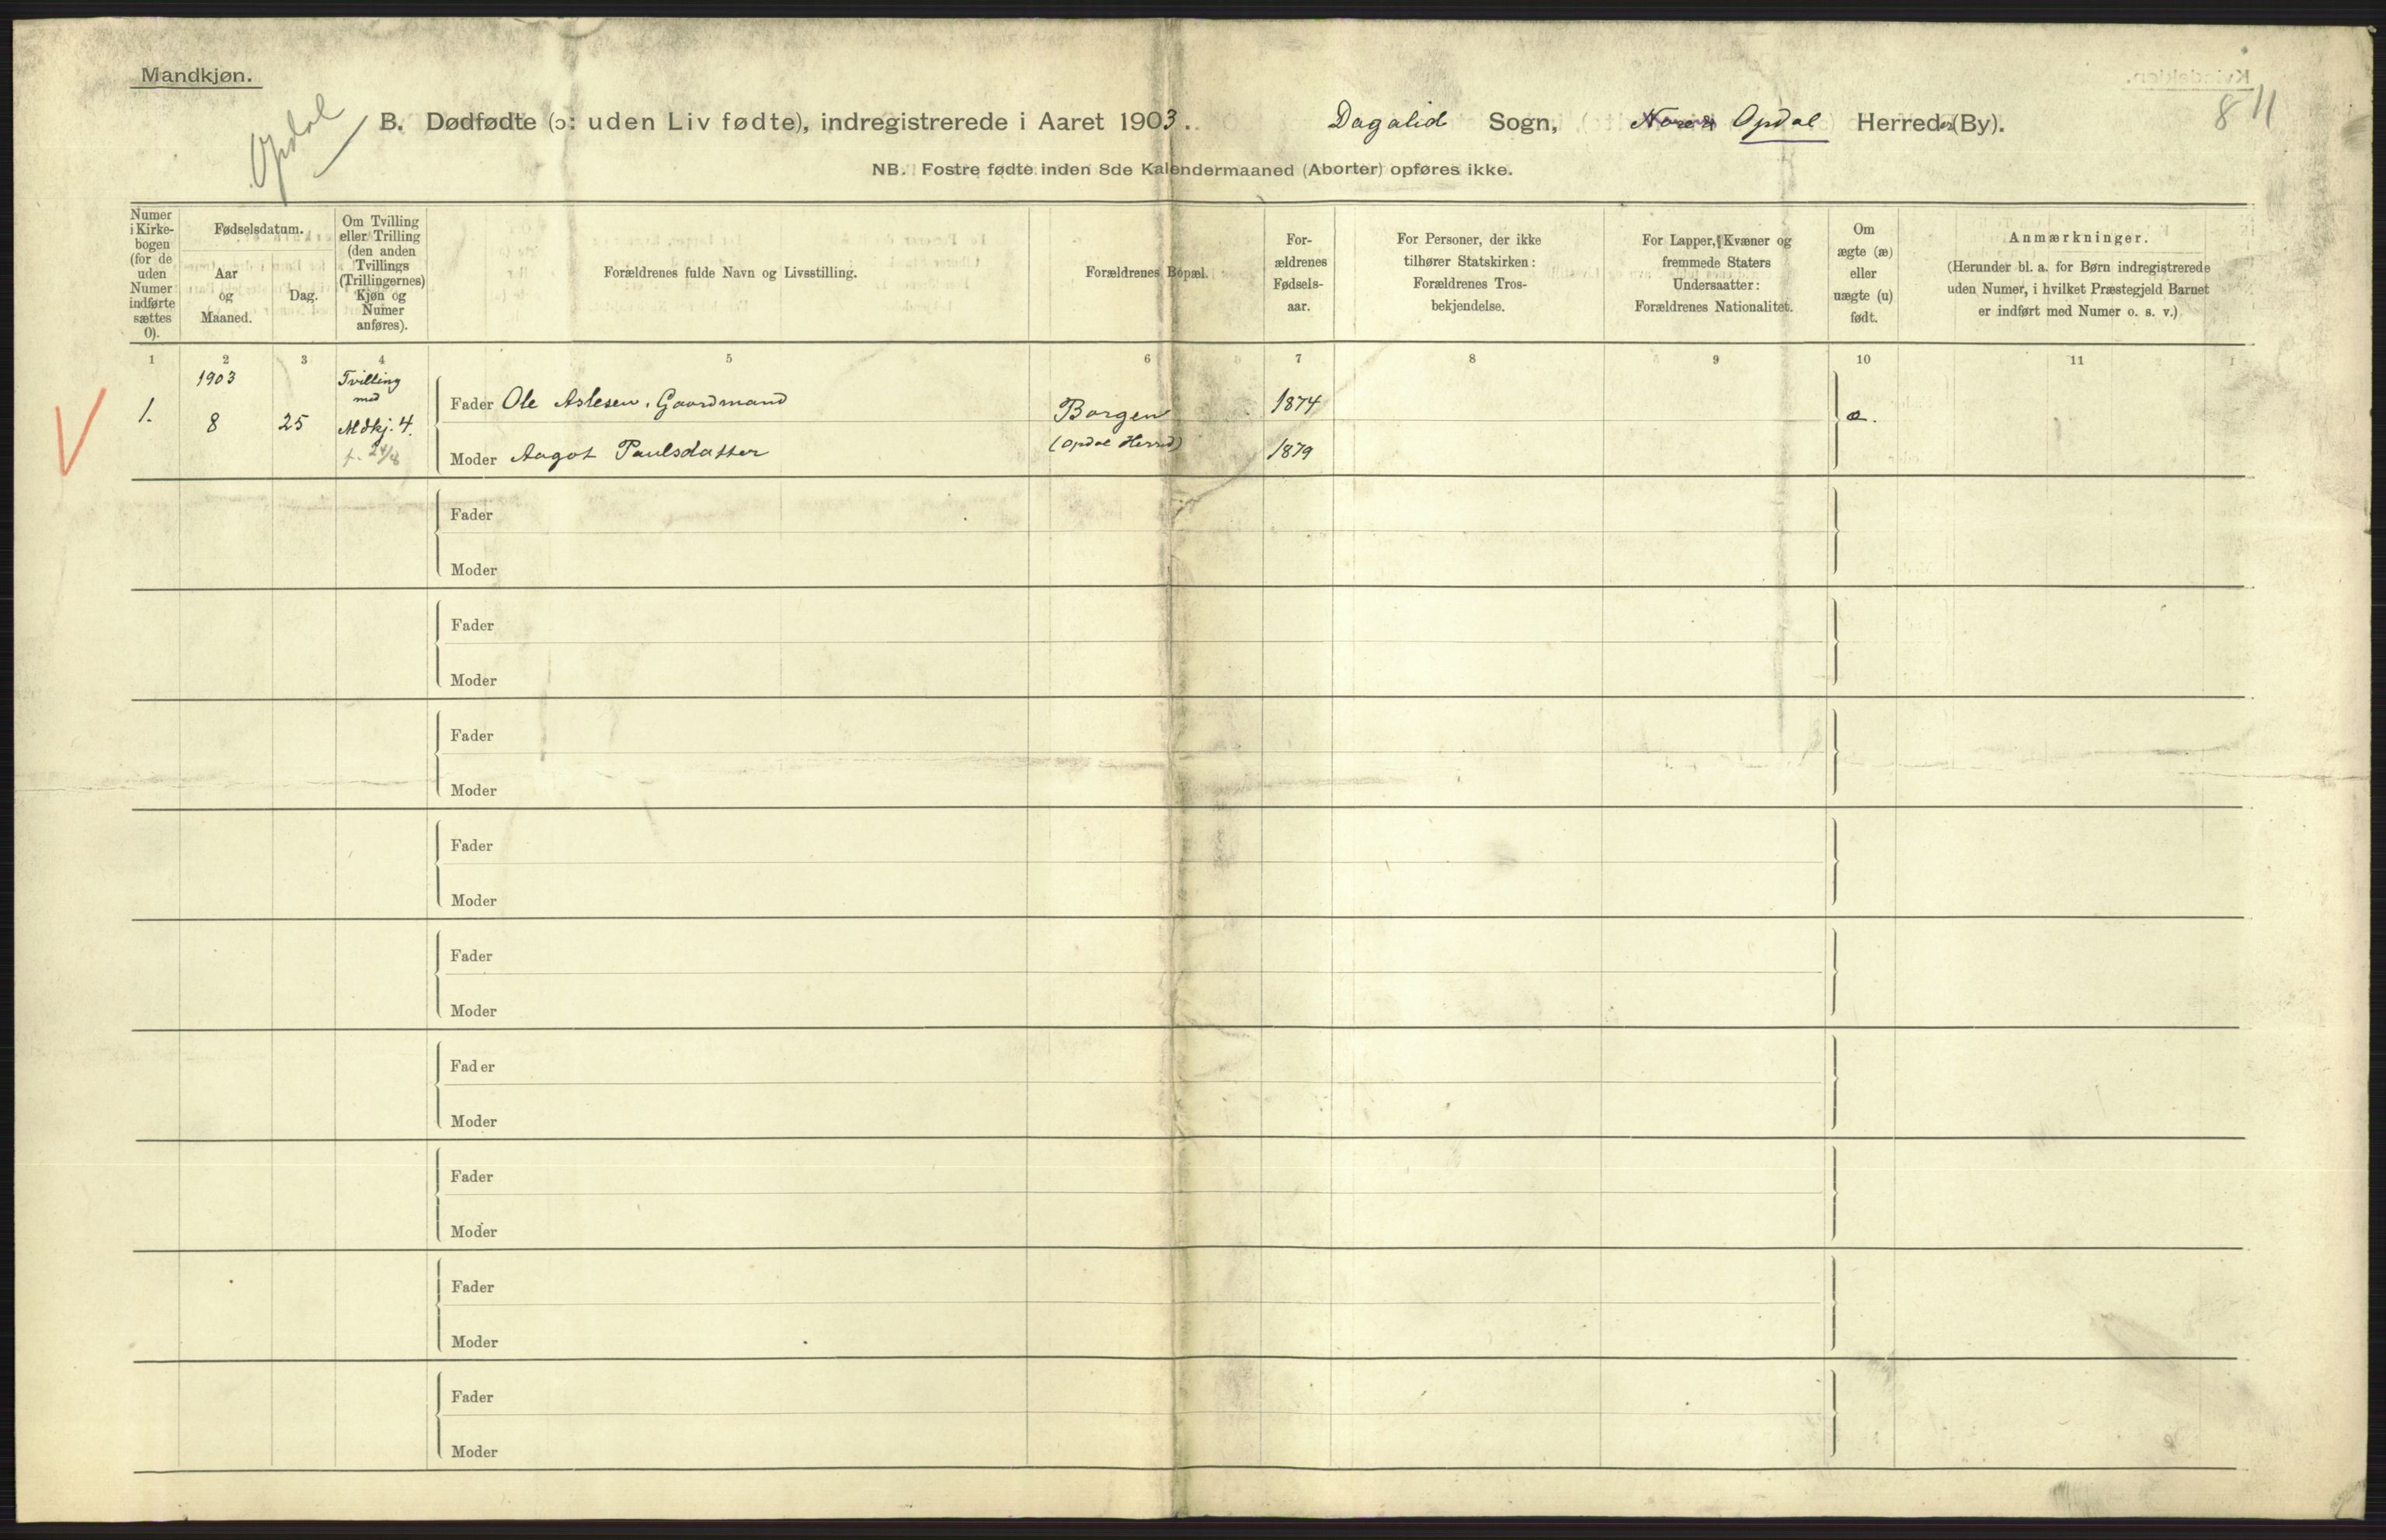 Mandkjøn.
Opdal
B. Dødfødte (ɔ: uden Liv fødte), indregistrerede i Aaret 1903. Dagalid Sogn, Opdal Herred (By).
8 11
NB. Fostre fødte inden 8de Kalendermaaned (Aborter) opføres ikke.
Numer
i Kirke-
bogen
(for de
uden
Numer
indførte
sættes
0).
Fødselsdatum.
Aar
og
Maaned.
Dag.
Om Tvilling
eller Trilling
(den anden
Tvillings
(Trillingernes)
Kjøn og
Numer
anføres).
Forældrenes fulde Navn og Livsstilling.
Forældrenes Bopæl.
For-
ældrenes
Fødsels-
aar.
For Personer, der ikke
tilhører Statskirken:
Forældrenes Tros-
bekjendelse.
For Lapper, Kvæner og
fremmede Staters
Undersaatter:
Forældrenes Nationalitet.
Om
ægte (æ)
eller
uægte (u)
født.
Anmærkninger.
(Herunder bl. a. for Børn indregistrerede
uden Numer, i hvilket Præstegjeld Barnet
er indført med Numer o. s. v.)
1 2 3 4 5 6 7 8 9 10 11
1.
1903
8
25
Tvilling
med
Mdkj. 4.
f. 24/8
Fader Ole Aslesen, Gaardmand
Moder Aagot Paulsdatter
Borgen
(Opdal Herred)
1874
1879
æ.
Fader
Moder
Fader
Moder
Fader
Moder
Fader
Moder
Fader
Moder
Fader
Moder
Fader
Moder
Fader
Moder
Fader
Moder